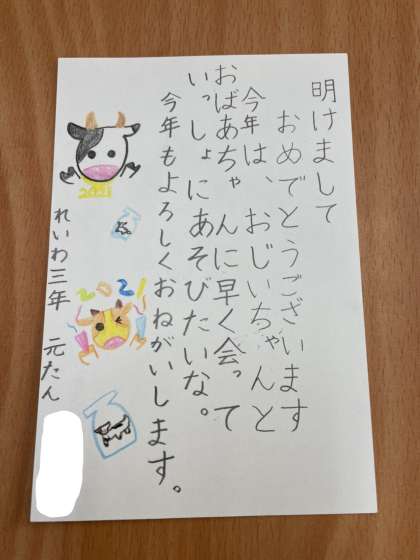 明けまして
おめでとうございます
今年は、おじいちゃんと
おばあちゃんに早く会って
いっしょにあそびたいな。
今年もよろしくおねがいします。
2021
2021
れいわ三年 元たん